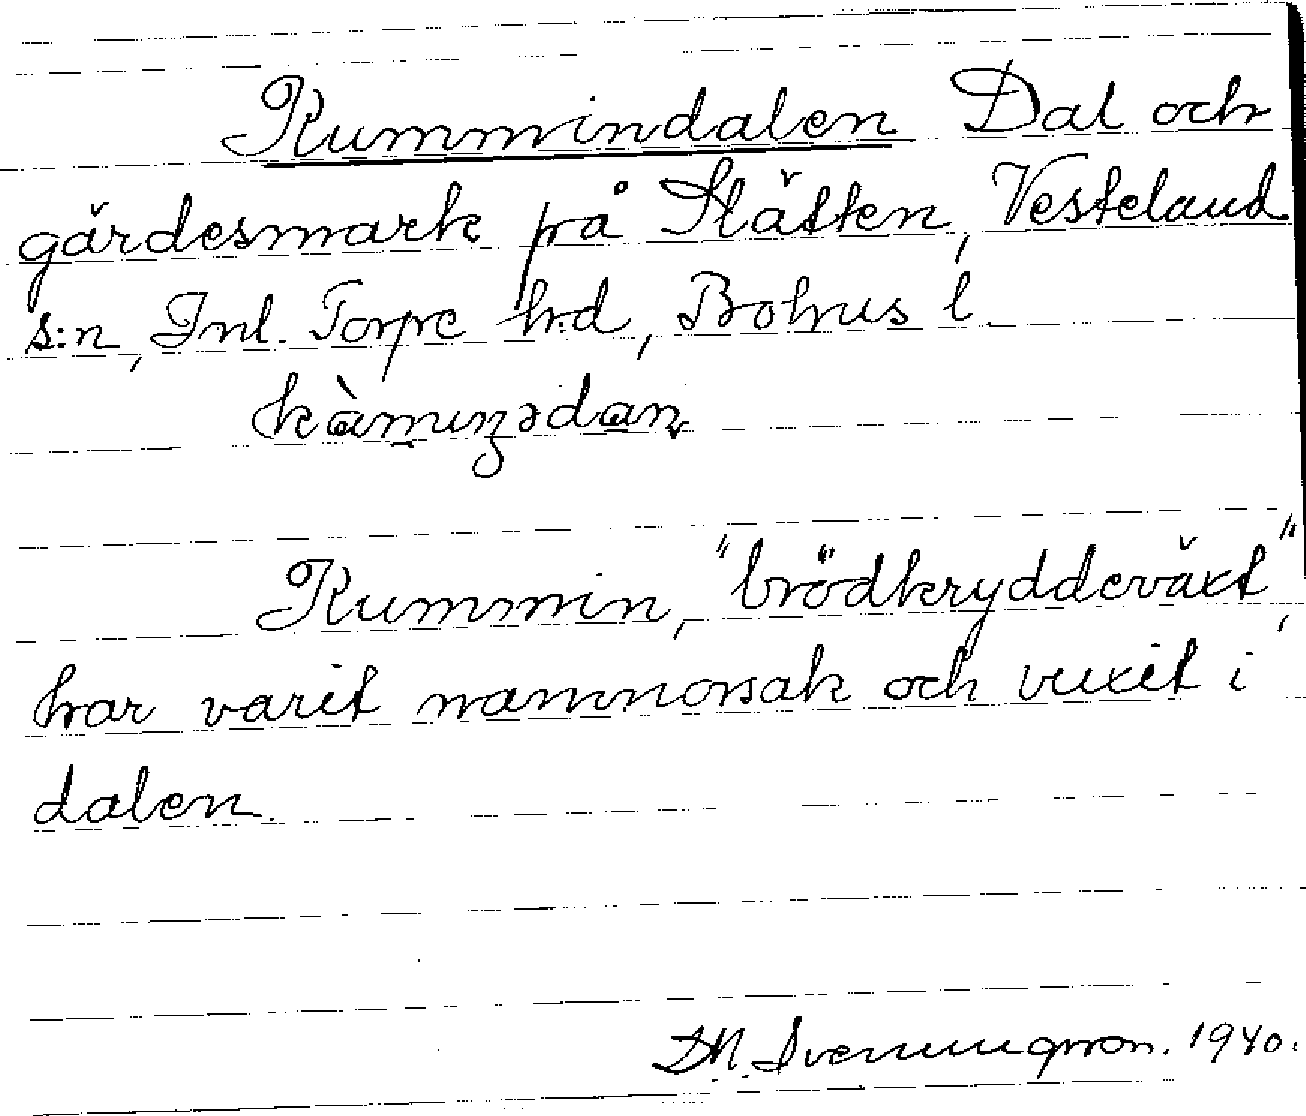 Kummindalen Dal och
gärdesmark på Slätten, Vesteland
s:n, Inl. Torpe h:d, Bohus l.
Kummin, "brödkryddeväxt",
har varit namnorsak och vuxit i
dalen.
D.N. Svenningsson. 1940.